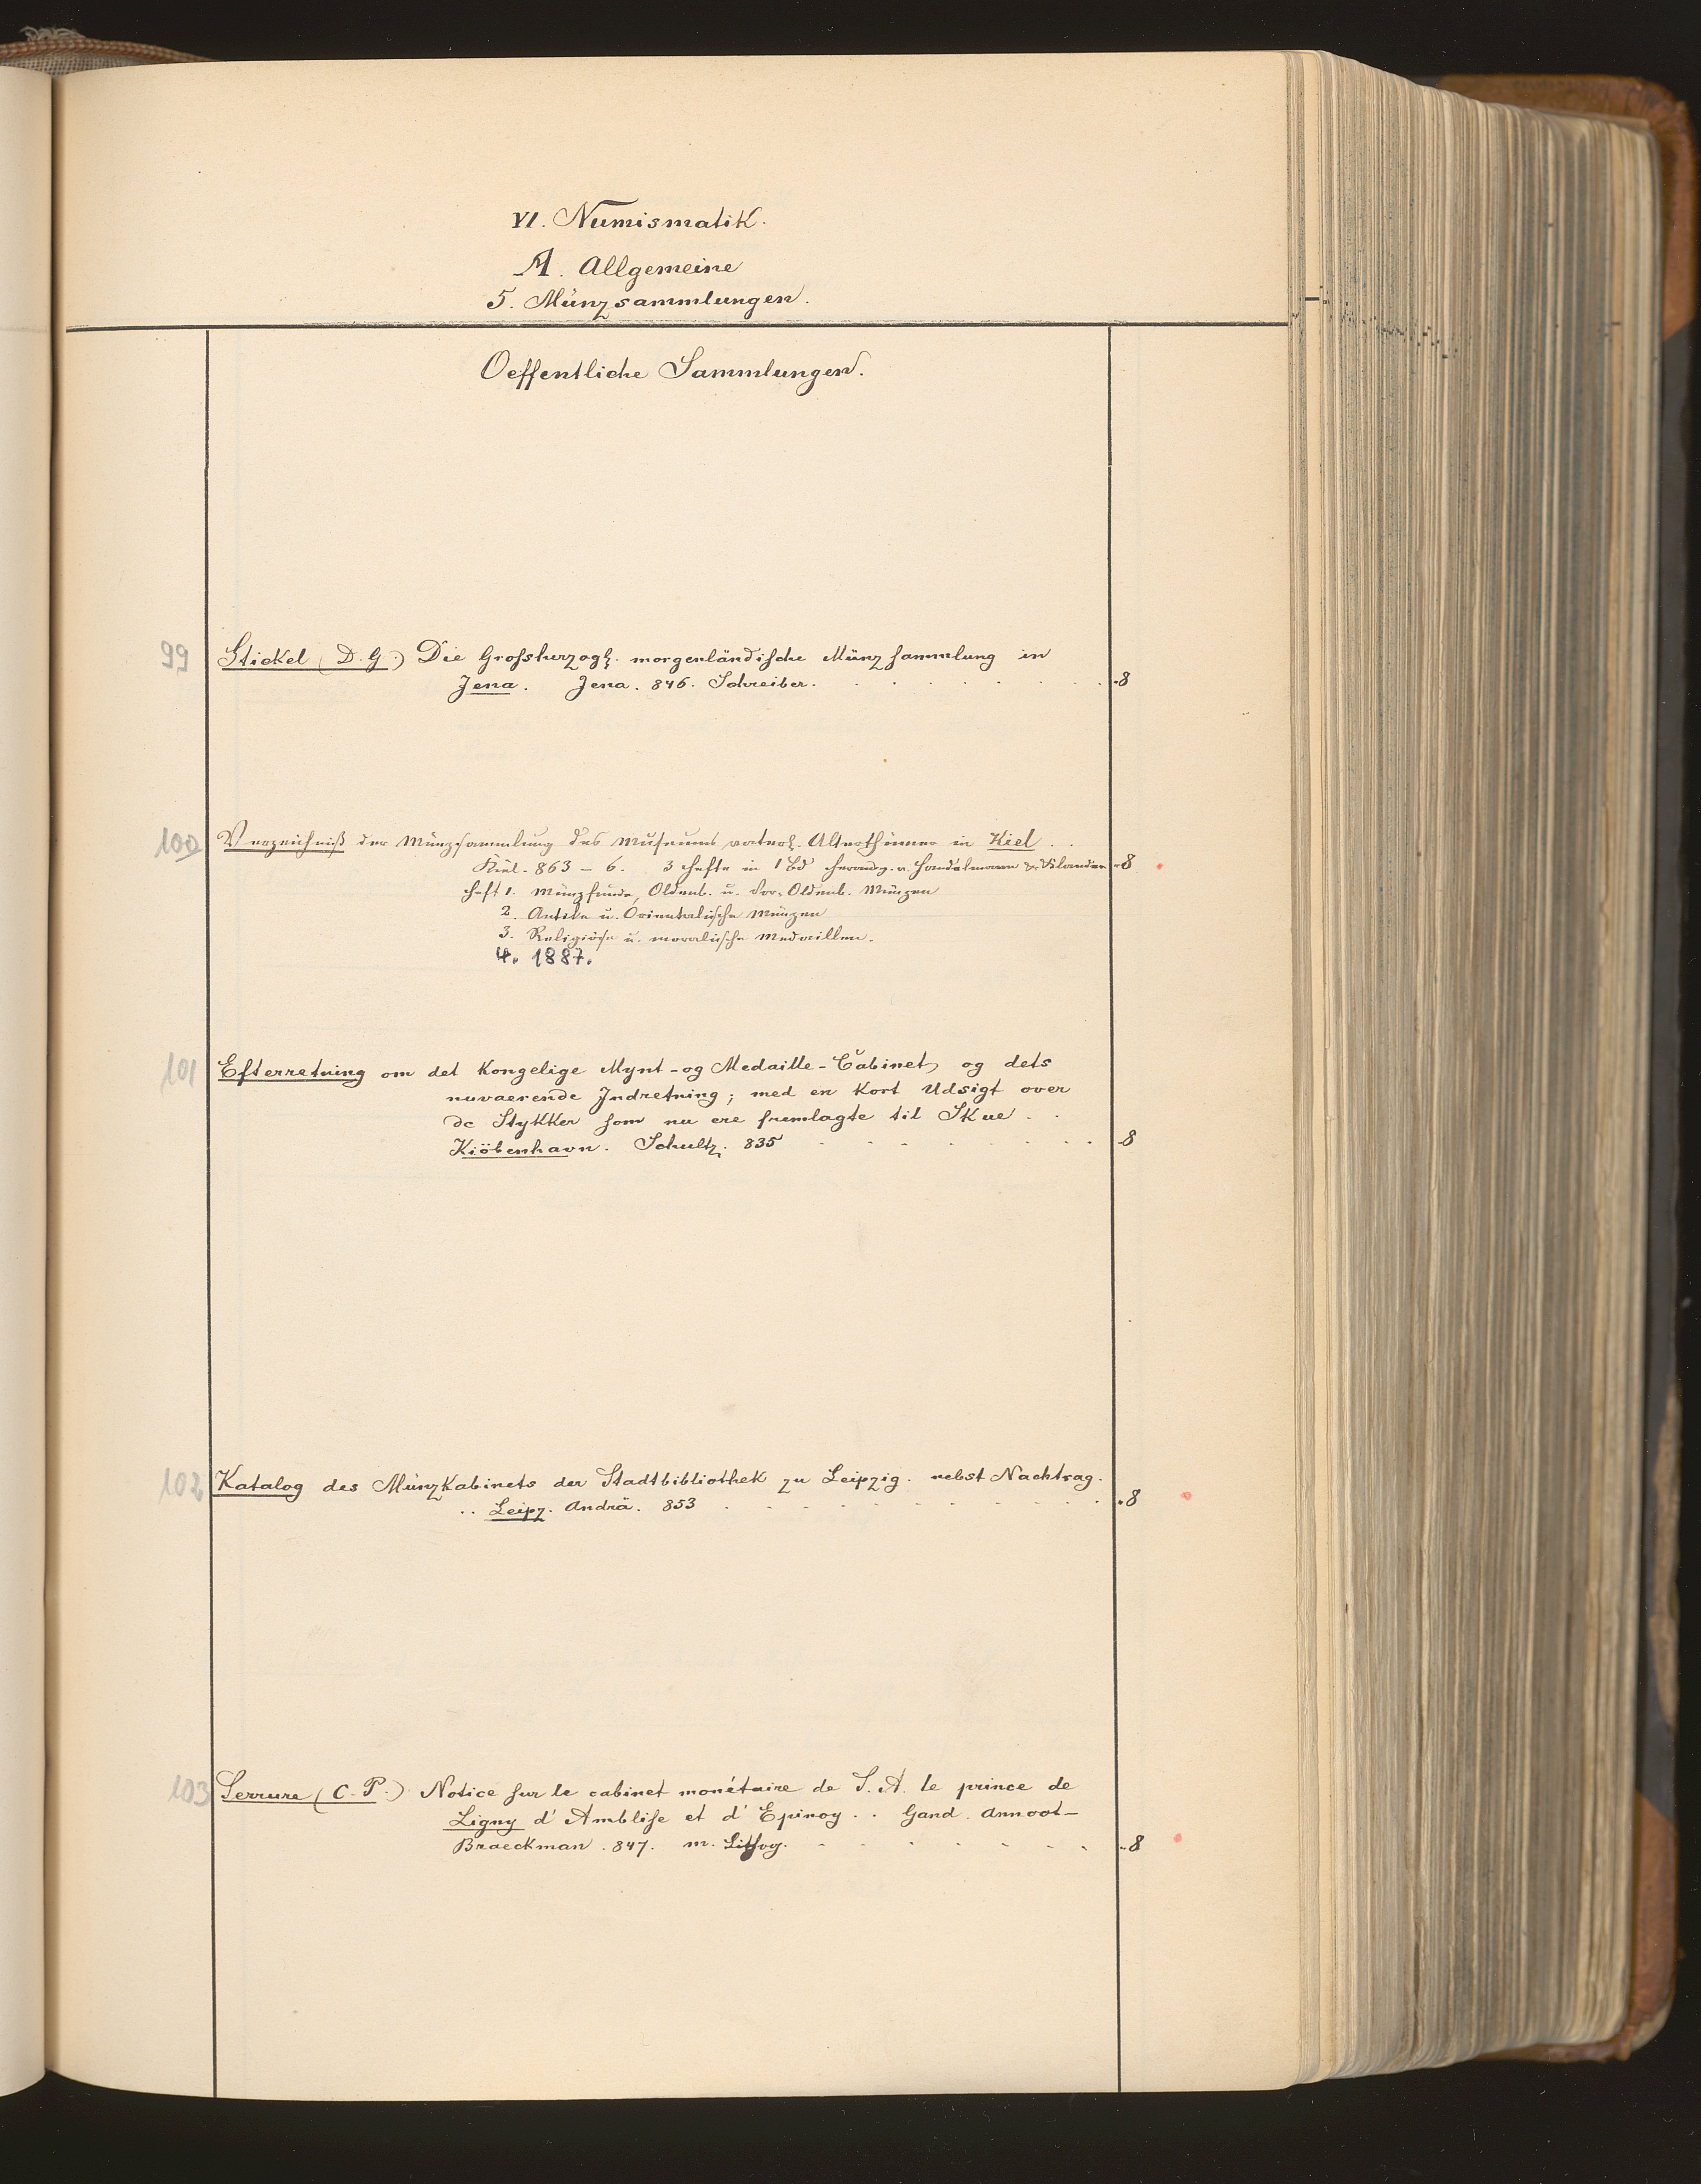 VI. Numismatik.
A. Allgemeine
5. Münzsammlungen.
Oeffentliche Sammlungen.
99 Stickel (D. G.) Die Grossherzogl. morgenländische Münzsammlung in
Jena. Jena. 846. Schreiber. 8
100 Verzeichniß der Münzsammlung des Museums vaterl. Alterthümer in Kiel . .
Kiel. 863 - 6. 3 Hefte in 1 Bd herausg. v. Handelmann 8
Heft 1. Münzfunde, Oldenb. u. Vor-Oldenb. Münzen
2. Antike u. Orientalische Münzen
3. Religiöse u. moralische Medaillen.
4. 1887.
101 Efterretning om det Kongelige Mynt-og Medaille-Cabinet, og dets
nuvaerende Indretning; med en Kort Udsigt over
de Stykker som nu ere fremlagte til Skue . .
Kiöbenhavn. Schultz. 835 8
102 Katalog des Münzkabinets der Stadtbibliothek zu Leipzig. nebst Nachtrag.
.. Leipz. Andrä. 853 8
103 Serrure (C. P.) Notice sur le cabinet monétaire de S. A. le prince de
Ligny d'Amblise et d'Epinoy . . Gand. Annoot-
Braeckman. 847. m. Lithog. 8